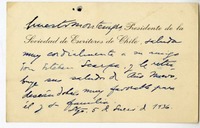 Ernesto Montenegro, Presidente de la
Sociedad de Escritores de Chile, saluda
muy cordialmente a su amigo
don Esteban Scarpa y le retri-
buye sus saludos de Año Nuevo,
deseándole muy favorable para
él y su familia
Stgo, 5 de Enero de 1936